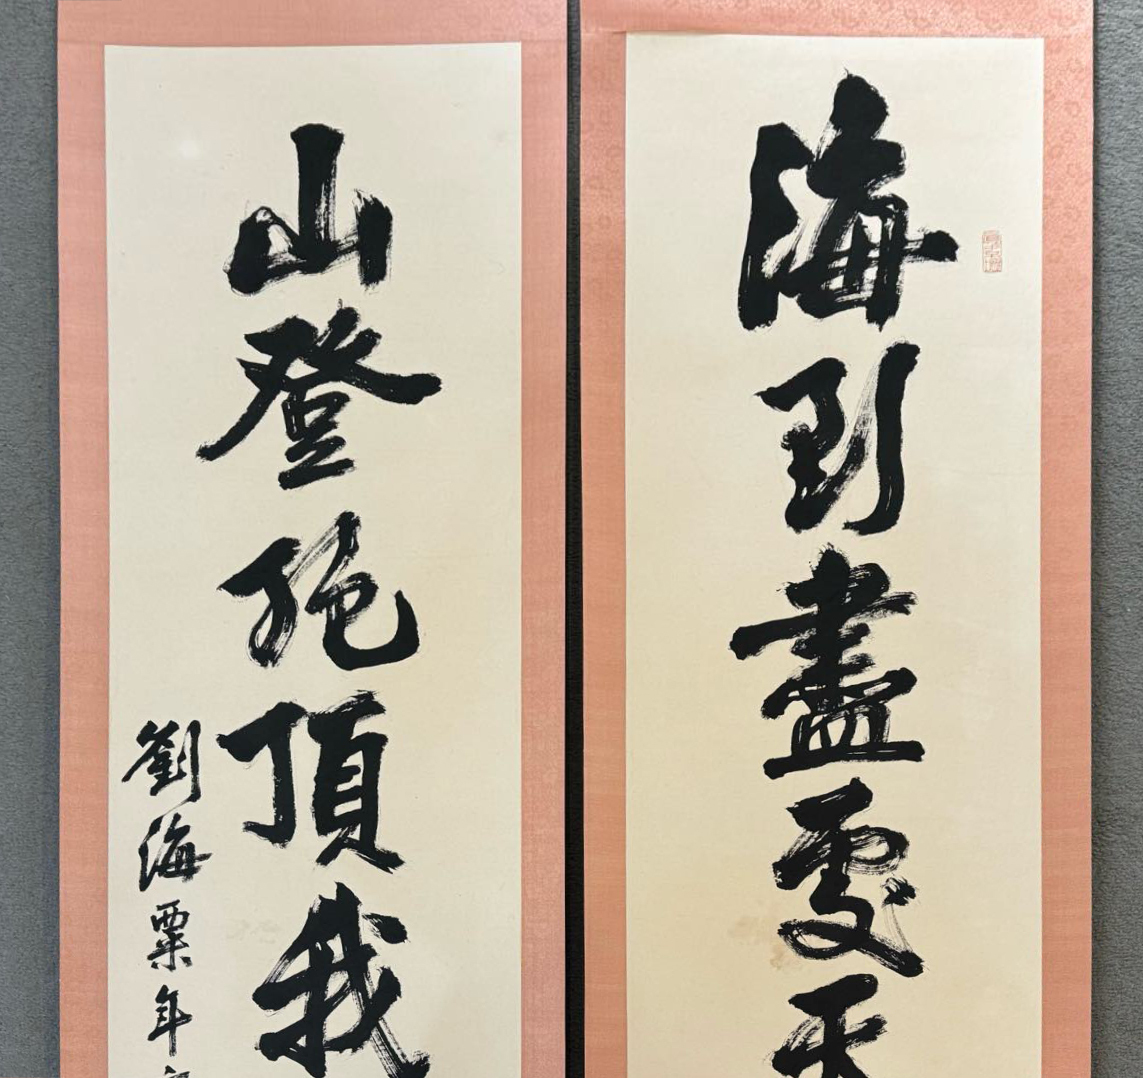 海到盡處天
山登絕頂我
劉海粟年